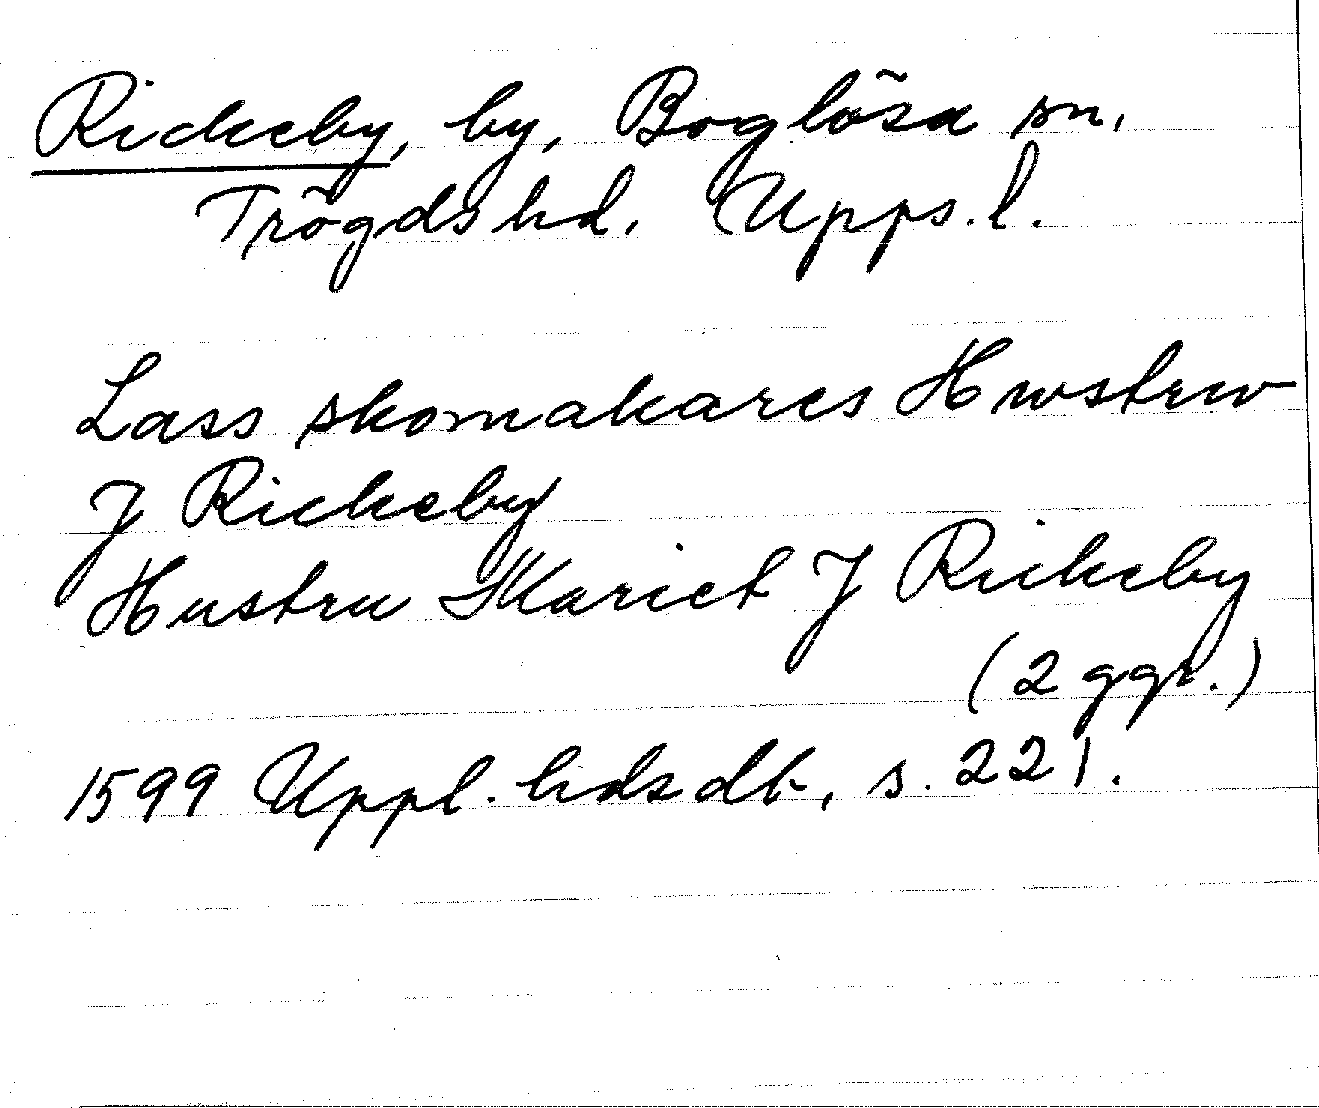 Rickeby, by, Boglösa sn.
Trögds hd. Upps. l.
Lass skomakares Hwstrw
J Rickeby
Hustru Karict J Rickeby
(2 ggr.)
1599 Uppl. hdsdb, s. 221.